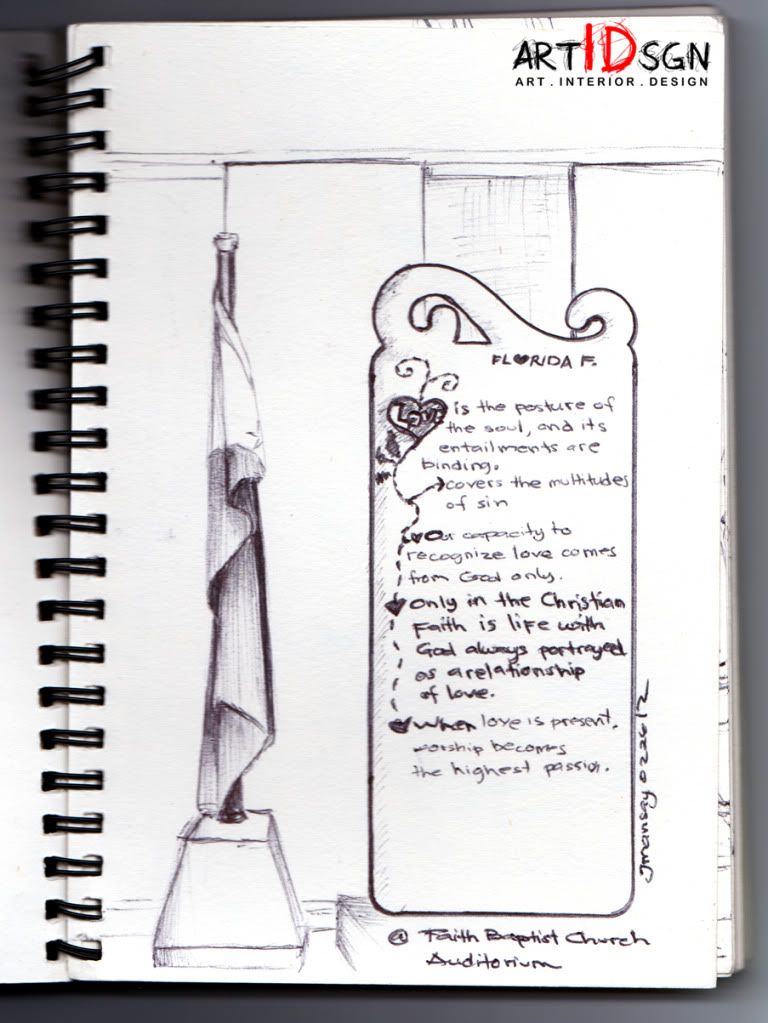 ARTIDSGN
ART . INTERIOR . DESIGN
FLORIDA F.
LOVE is the posture of
the soul, and its
entailments are
binding.
covers the multitudes
of sin
Our capacity to
recognize love comes
from God only.
Only in the Christian
Faith is life with
God always portrayed
as a relationship
of love.
When love is present,
worship becomes
the highest passion.
Jmansay 022612
@ Faith Baptist Church
Auditorium